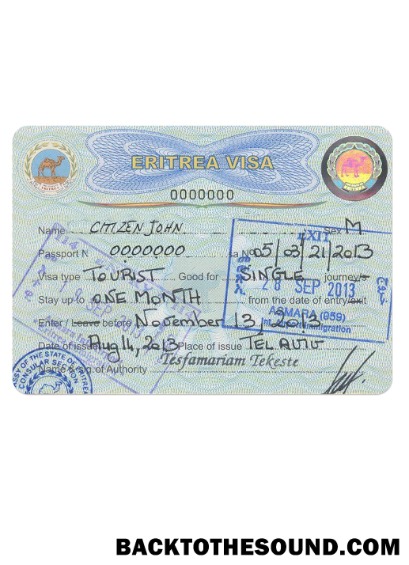 ERITREA VISA
0000000
Name CITIZEN JOHN Sex M
Passport N 0000000 Visa No 05/03/21/2013
Visa type TOURIST Good for SINGLE journey/s
Stay up to ONE MONTH from the date of entry/exit
Enter / Leave before November 13, 2013
Date of issue Aug 14, 2013 Place of issue TEL AVIV
Tesfamariam Tekeste
Name & sig. of Authority
EXIT
28 SEP 2013
ASMARA (059)
Immigration
OF THE STATE OF
CONSULAR SECTION
BACKTOTHESOUND.COM